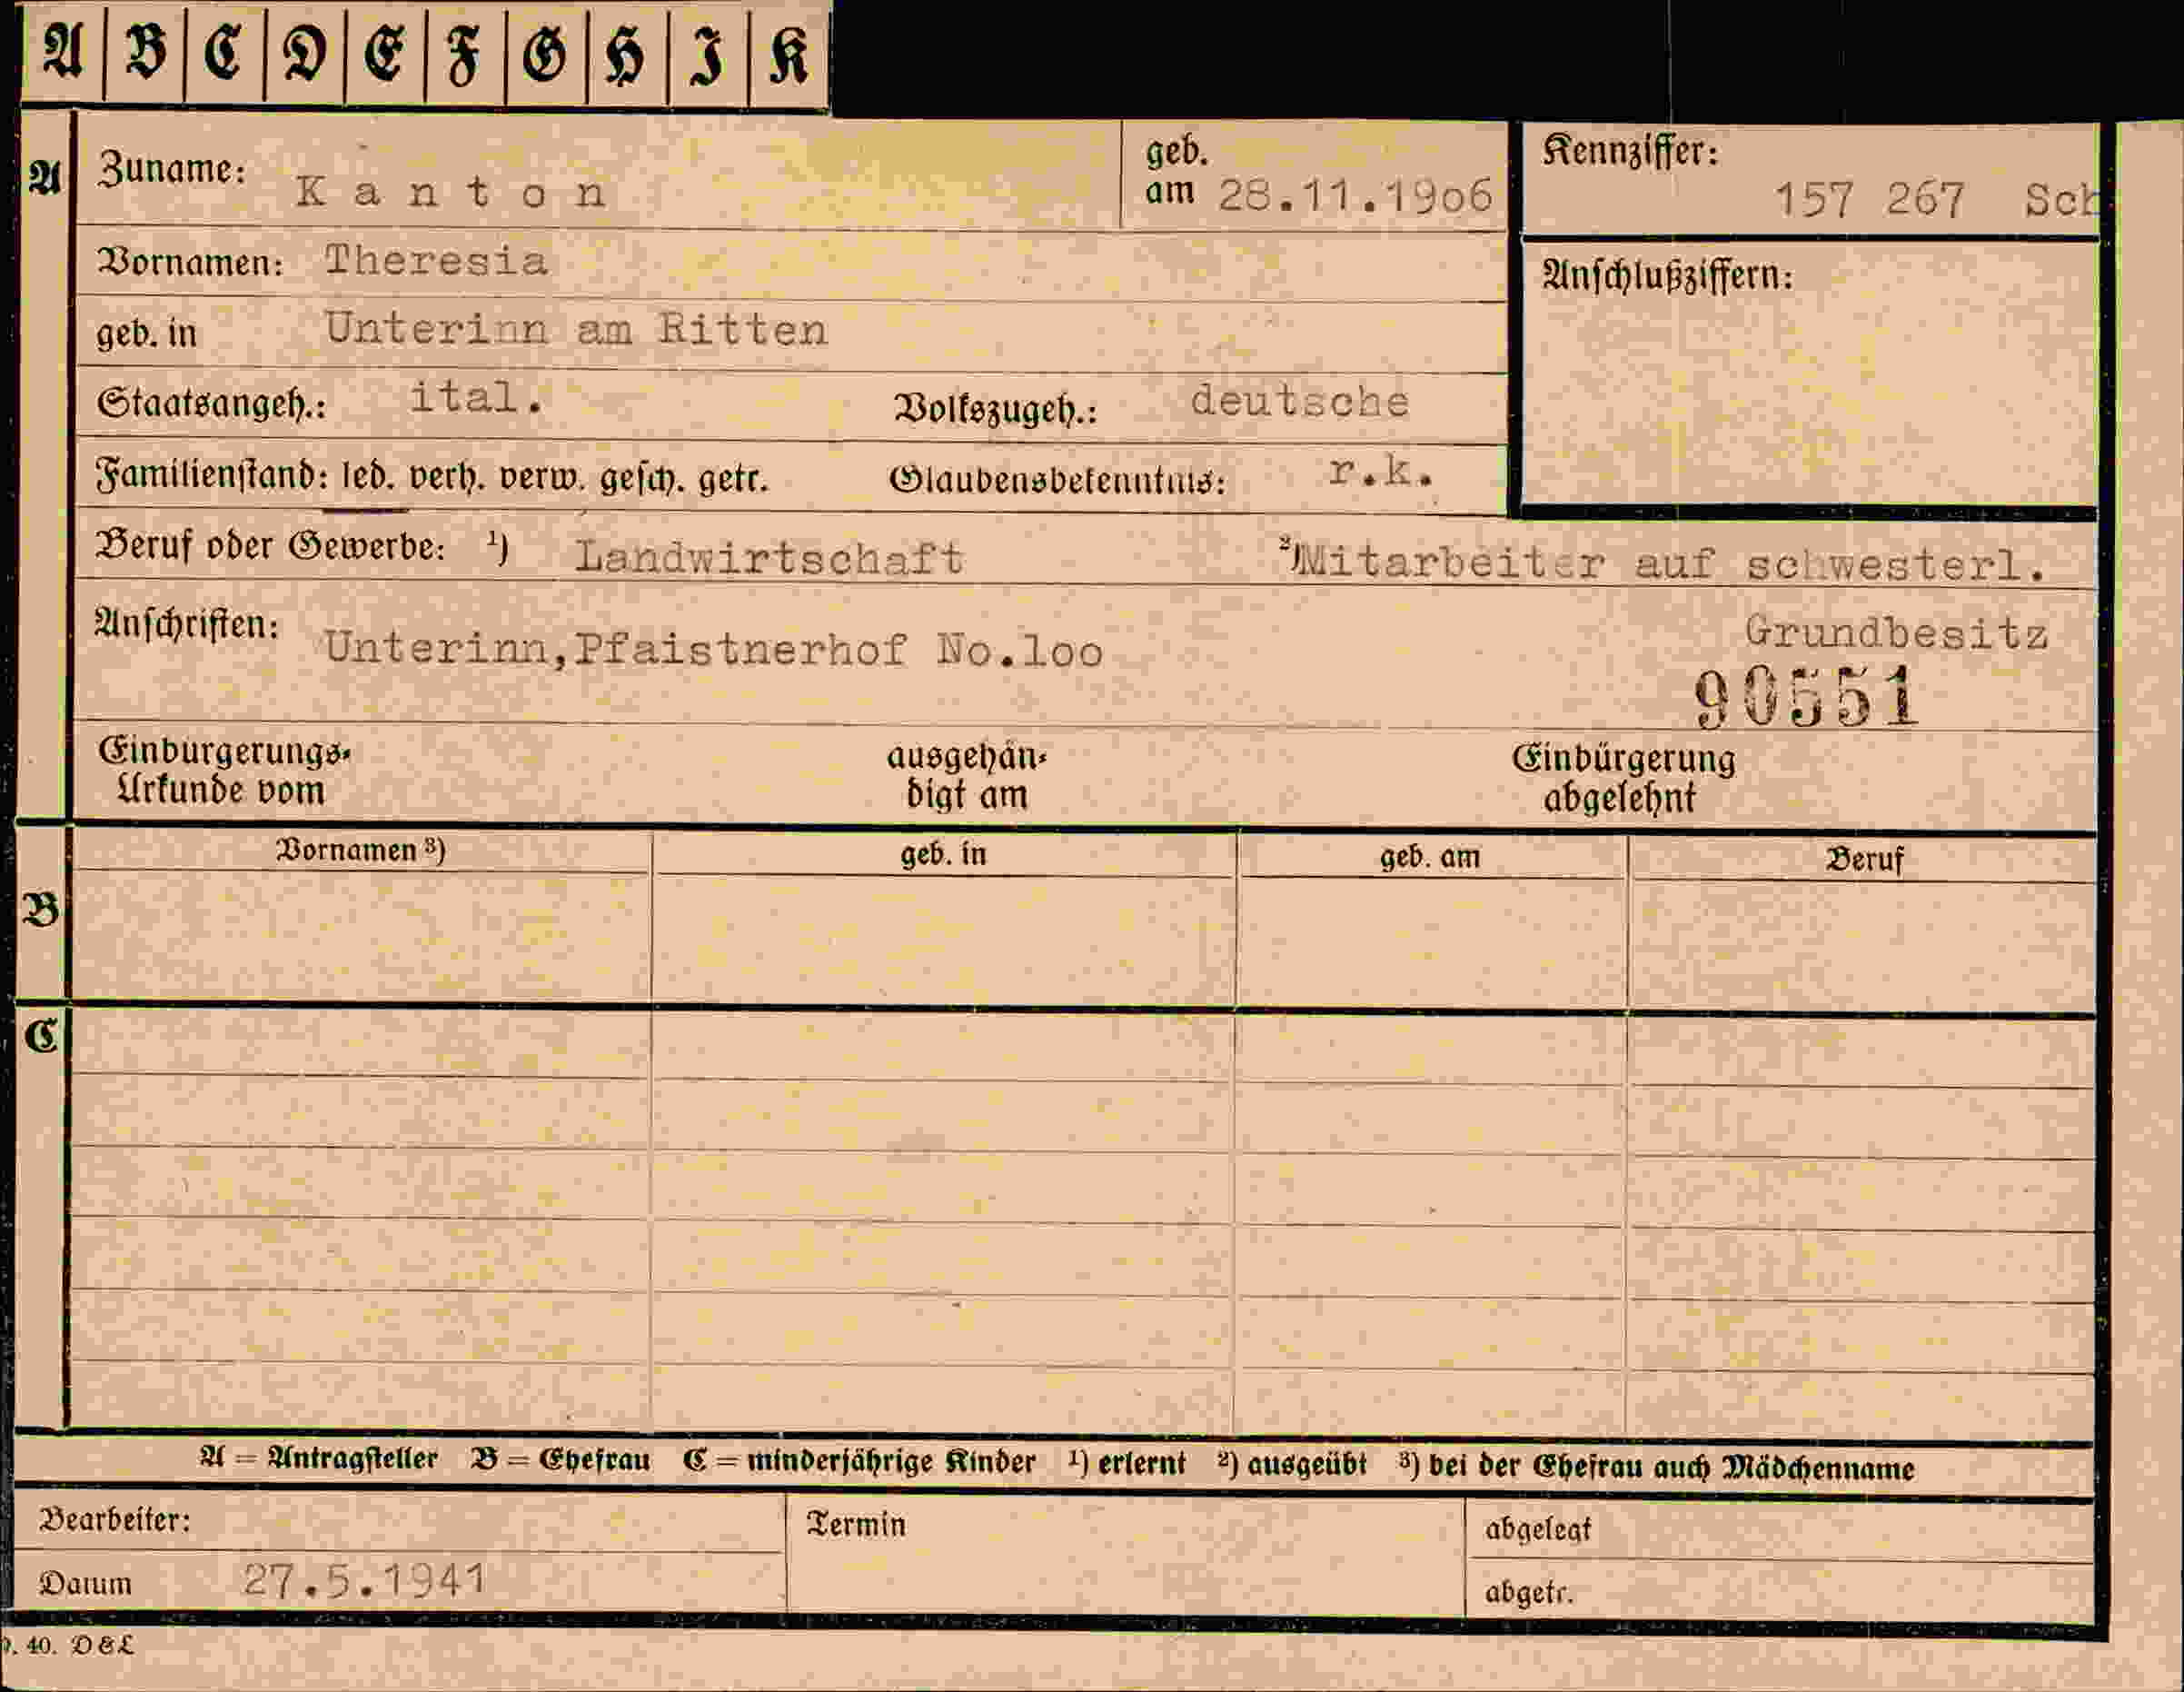 A B C D E F G H I K
A Zuname: Kanton geb. am 28.11.19o6 Kennziffer: 157 267 Sch
Vornamen: Theresia Anschlußziffern:
geb. in Unterinn am Ritten
Staatsangeh.: ital. Volkszugeh.: deutsche
Familienstand: led. verh. verw. gesch. getr. Glaubensbekenntnis: r.k.
Beruf oder Gewerbe: ¹) Landwirtschaft ²) Mitarbeiter auf schwesterl.
Grundbesitz
Anschriften: Unterinn,Pfaistnerhof No.loo
90551
Einbürgerungs- ausgehän- Einbürgerung
Urkunde vom digt am abgelehnt
Vornamen ³) geb. in geb. am Beruf
B
C
A = Antragsteller B = Ehefrau C = minderjährige Kinder ¹) erlernt ²) ausgeübt ³) bei der Ehefrau auch Mädchenname
Bearbeiter: Termin abgelegt
Datum 27.5.1941 abgetr.
40. D&L